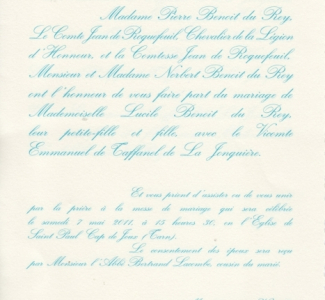 Madame Pierre Benoit du Rey,
Le Comte Jean de Roquefeuil, Chevalier de la Légion
d'Honneur, et la Comtesse Jean de Roquefeuil,
Monsieur et Madame Norbert Benoit du Rey
ont l'honneur de vous faire part du mariage de
Mademoiselle Lucile Benoit du Rey,
leur petite-fille et fille, avec le Vicomte
Emmanuel de Taffanel de La Jonquière.
Et vous prient d'assister ou de vous unir
par la prière à la messe de mariage qui sera célébrée
le samedi 7 mai 2011, à 15 heures 30, en l'Eglise de
Saint Paul Cap de Joux (Tarn).
Le consentement des époux sera reçu
par Monsieur l'Abbé Bertrand Lacombe, cousin du marié.